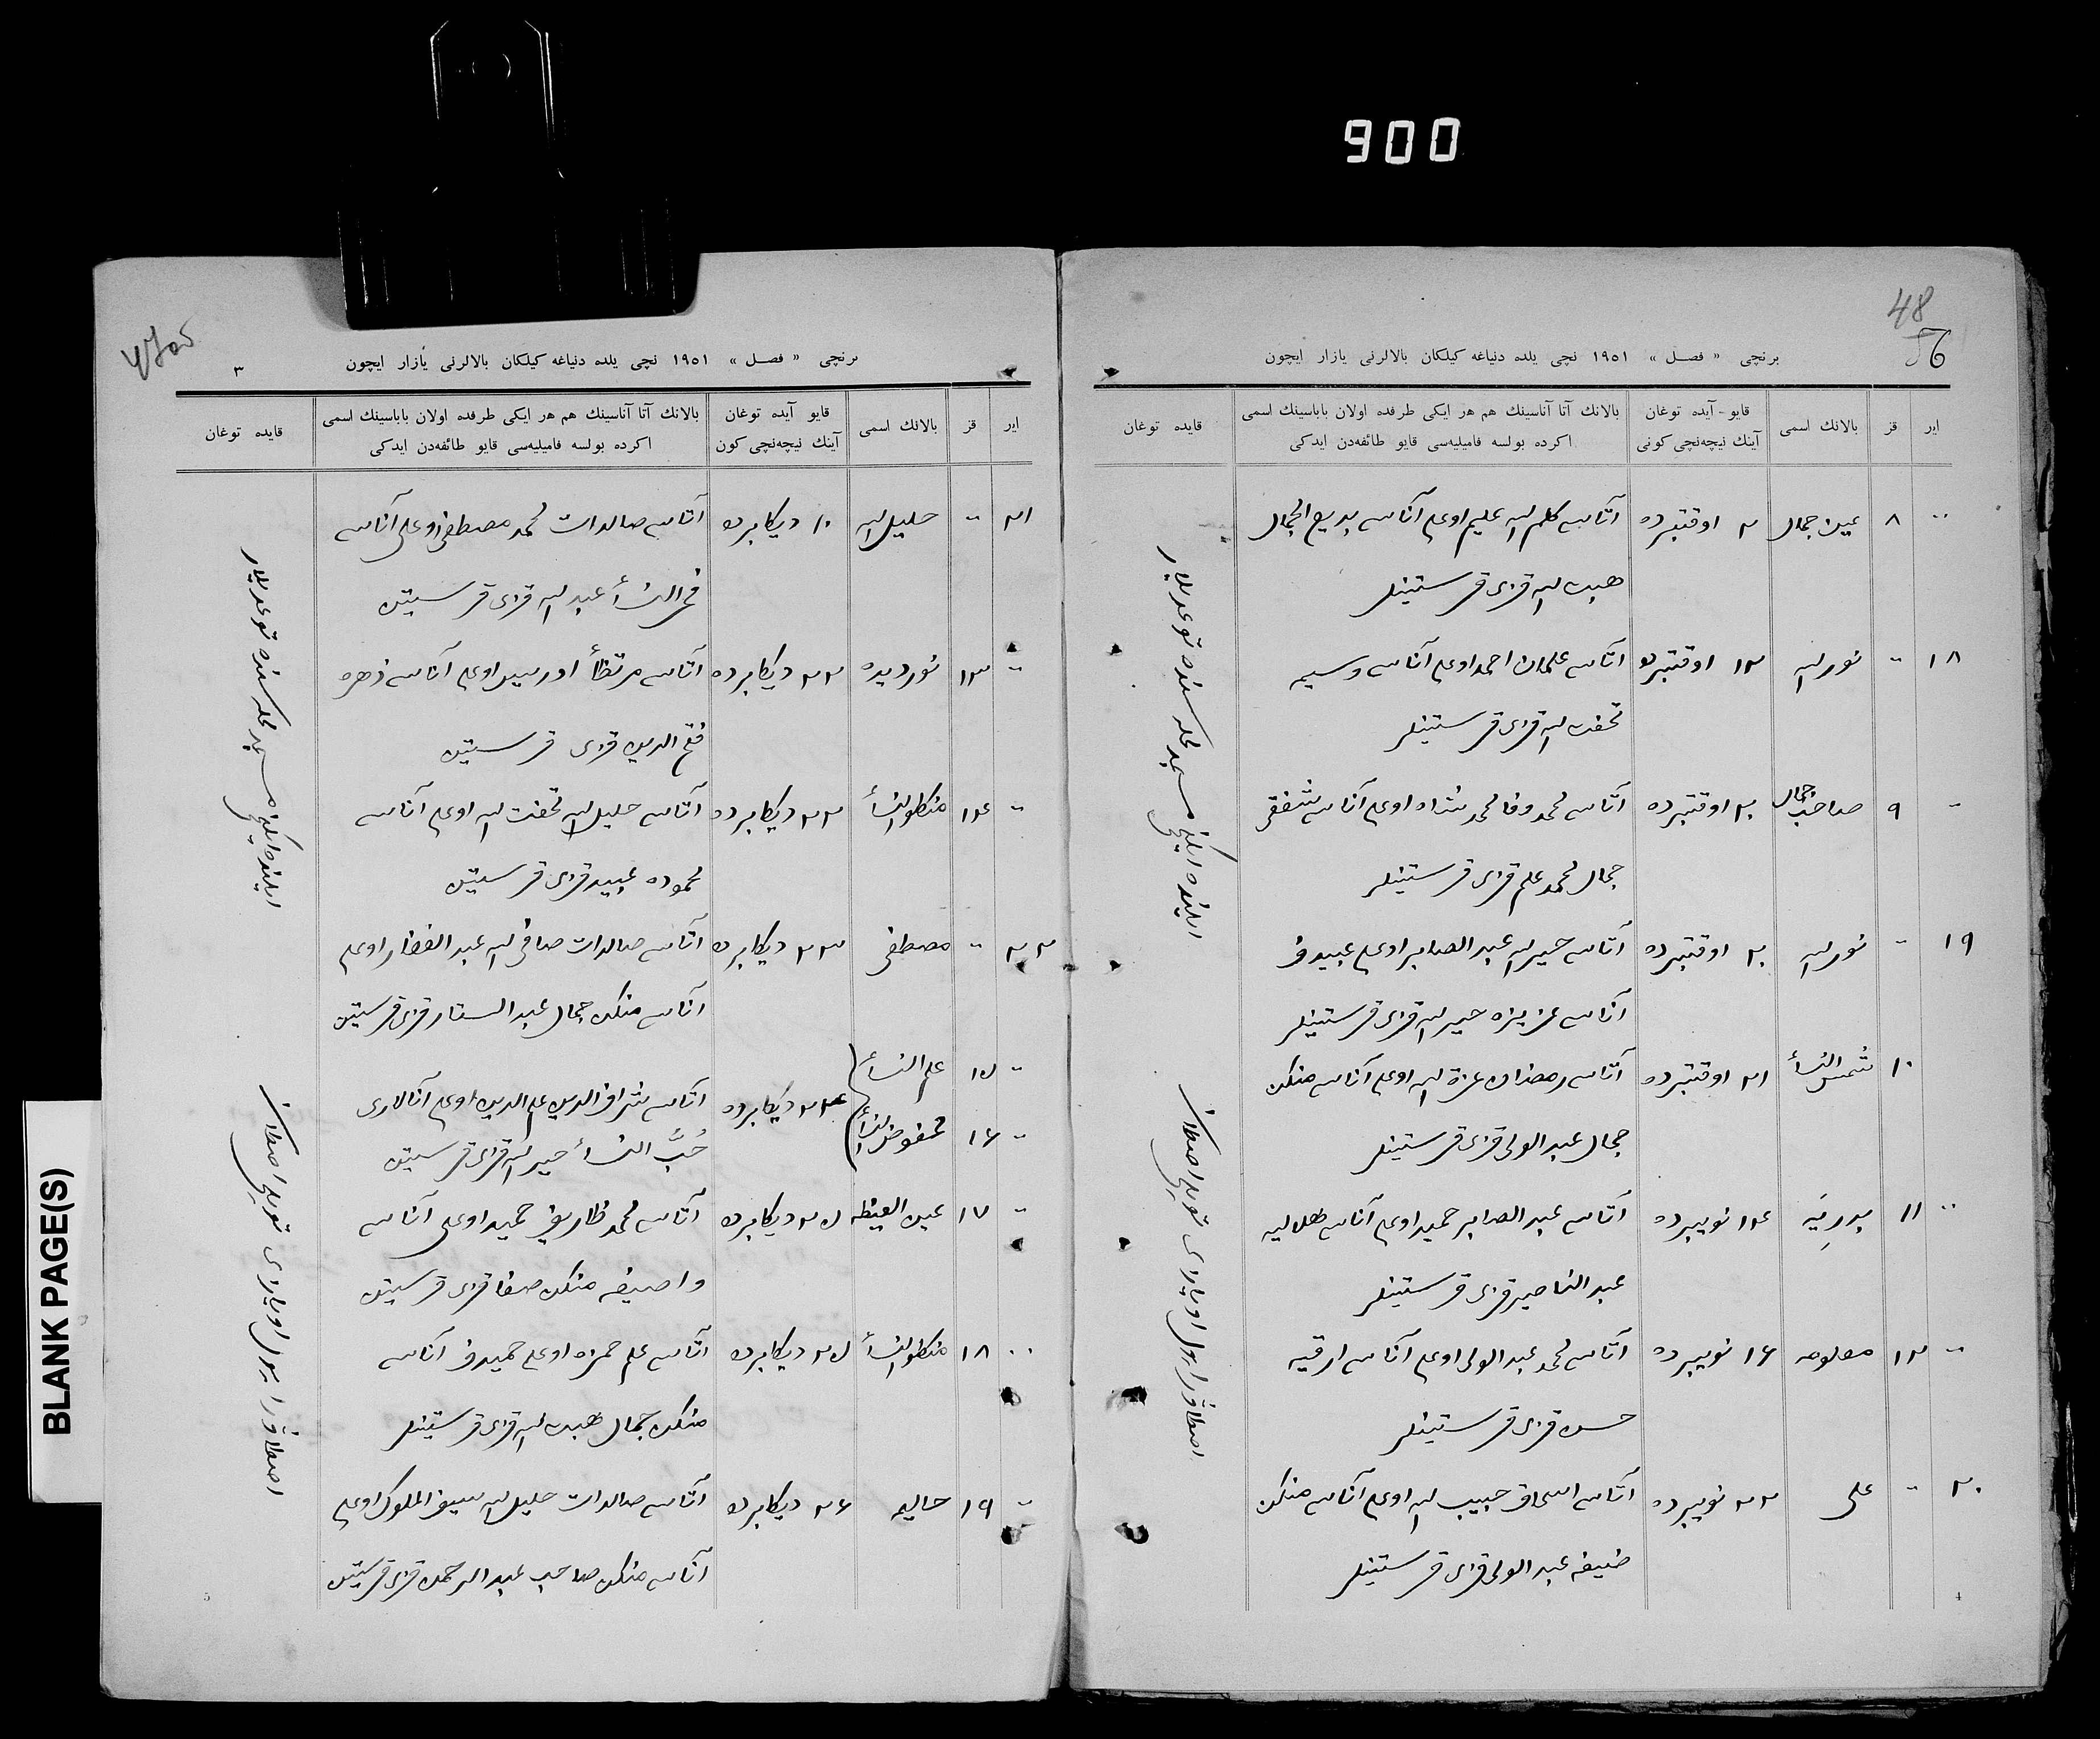 900
48
56
برنچی « فصل » ١٩٥١ نچی يلده دنياغه كيلكان بالالرنی يازار ايچون
اير
قز
بالانك اسمی
قايو - آيده توغان
آينك نيچه‌نچی كونی
بالانك آتا آناسينك هم هر ايكی طرفده اولان باباسينك اسمی
اكرده بولسه فاميليه‌سی قايو طائفه‌دن ايدكی
قايده توغان
٨ عين جمال ٢ اوقتبرده آتاسی كلم الله عليم اوغلی آناسی بديع الجمال
هبت الله قزی قرستينلر
١٨ نورالله ١٢ اوقتبرده آتاسی علمان احمد اوغلی آناسی وسيمه
تحفت الله قزی قرستينلر
٩ صاحب جمال ٢٠ اوقتبرده آتاسی محمد وفا محمد شاه اوغلی آناسی شفقی
جمال محمد علم قزی قرستينلر
١٩ نورالله ٢٠ اوقتبرده آتاسی خيرالله عبد الصابر اوغلی عبيدف
آناسی عزيزه خيرالله قزی قرستينلر
١٠ شمس النسأ ٢١ اوقتبرده آتاسی رمضان عزة الله اوغلی آناسی منكن
جمال عبد الولی قزی قرستينلر
١١ بدريّه ١٤ نويبرده آتاسی عبد الصابر حميد اوغلی آناسی هلاليه
عبد الناصر قزی قرستينلر
١٢ معلومه ١٦ نويبرده آتاسی محمد عبد الولی اوغلی آناسی ارقيه
حسن قزی قرستينلر
٢٠ علی ٢٢ نويبرده آتاسی اسحاق حبيب الله اوغلی آناسی منكن
ضيفه عبد الولی قزی قرستينلر
4
برنچی « فصل » ١٩٥١ نچی يلده دنياغه كيلكان بالالرنی يازار ايچون
٣
اير
قز
بالانك اسمی
قايو آيده توغان
آينك نيچه‌نچی كون
بالانك آتا آناسينك هم هر ايكی طرفده اولان باباسينك اسمی
اكرده بولسه فاميليه‌سی قايو طائفه‌دن ايدكی
قايده توغان
٢١ خليل الله ١٠ ديكابرده آتاسی صالدات محمد مصطفی اوغلی آناسی
فخر النسأ عبد الله قزی قرستين
١٣ نورديده ٢٢ ديكابرده آتاسی مرتظأ ادريس اوغلی آناسی زهره
فتح الدين قزی قرستين
١٤ منكلو النسأ ٢٢ ديكابرده آتاسی خليل الله تحفت الله اوغلی آناسی
محموده عبيد قزی قرستين
٢٢ مصطفی ٢٣ ديكابرده آتاسی صالدات صافی الله عبد الغفار اوغلی
آناسی منكن جمال عبد الستار قزی قرستين
١٥ علم النسأ
١٦ محفوض النسأ ٢٣ ديكابرده آتاسی شراف الدين علم الدين اوغلی آنالاری
حُبّ النسأ خيرالله قزی قرستين
١٧ عين الغيظه ٢٥ ديكابرده آتاسی محمد ظاريف حميد اوغلی آناسی
واصيفه منكن صفا قزی قرستين
١٨ منكلو النسأ ٢٥ ديكابرده آتاسی علم حمزه اوغلی حميدف آناسی
منكن جمال هبت الله قزی قرستينلر
١٩ حاليمه ٢٦ ديكابرده آتاسی صالدات خليل الله سيف الملوك اوغلی
آناسی منكن صاحب عبد الرحمن قزی قرستين
5
BLANK PAGE(S)